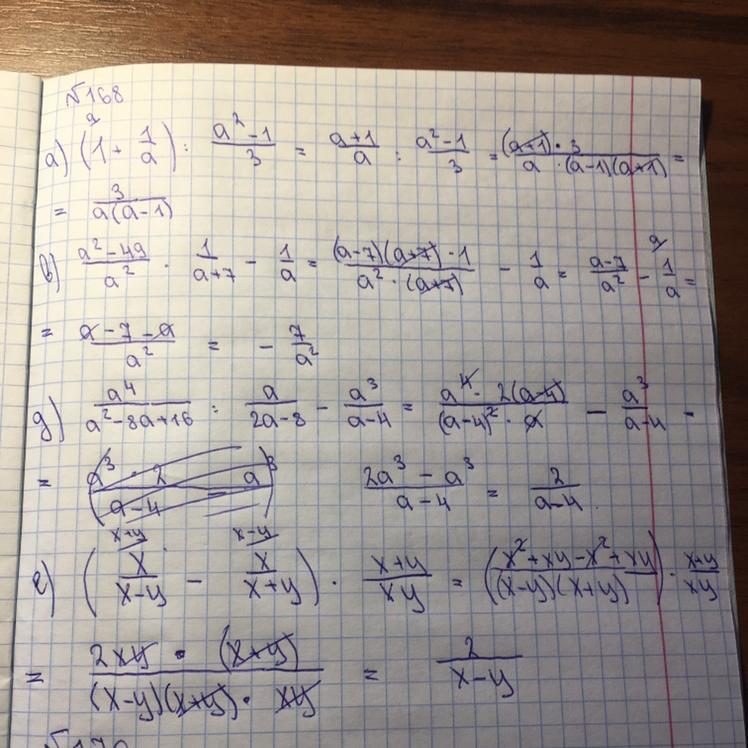 №168
а) (1 + 1/a) : (a² - 1)/3 = (a+1)/a : (a² - 1)/3 = ((a+1) · 3)/(a · (a-1)(a+1)) =
= 3/(a(a-1))
в) (a² - 49)/a² · 1/(a+7) - 1/a = ((a-7)(a+7) · 1)/(a² · (a+7)) - 1/a = (a-7)/a² - 1/a =
= (a - 7 - a)/a² = - 7/a²
д) a⁴/(a² - 8a + 16) : a/(2a-8) - a³/(a-4) = (a⁴ · 2(a-4))/((a-4)² · a) - a³/(a-4) -
= (2a³ - a³)/(a-4) = 2/(a-4)
е) (x/(x-y) - x/(x+y)) · (x+y)/(xy) = ((x² + xy - x² + xy)/((x-y)(x+y))) · (x+y)/(xy)
= (2xy · (x+y))/((x-y)(x+y) · xy) = 2/(x-y)